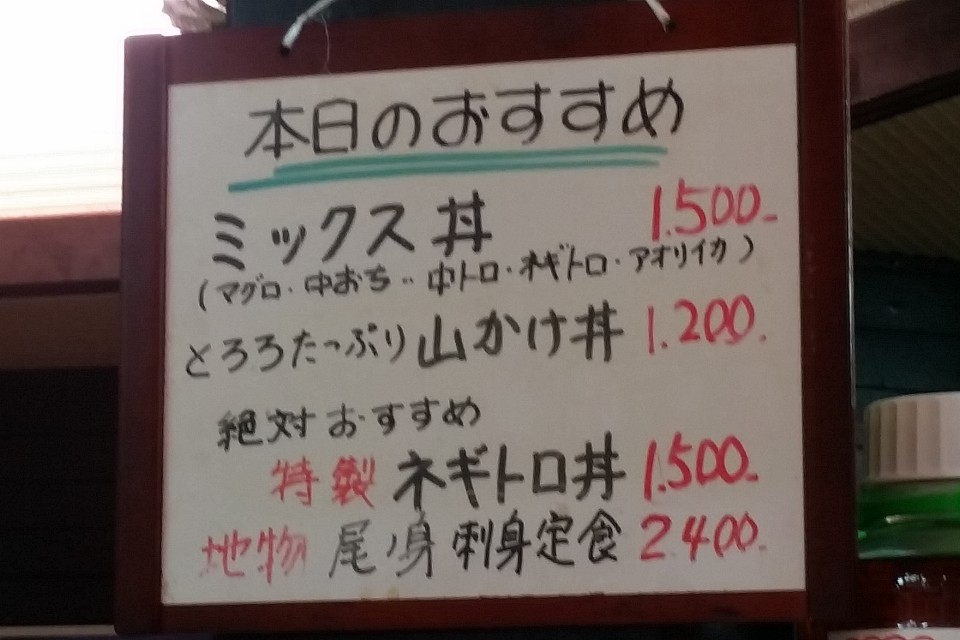 本日のおすすめ
ミックス丼 1.500-
(マグロ・中おち・・中トロ・ネギトロ・アオリイカ)
とろろたっぷり山かけ丼 1.200.
絶対おすすめ
特製 ネギトロ丼 1.500-
地物 尾ノ身 刺身定食 2.400.